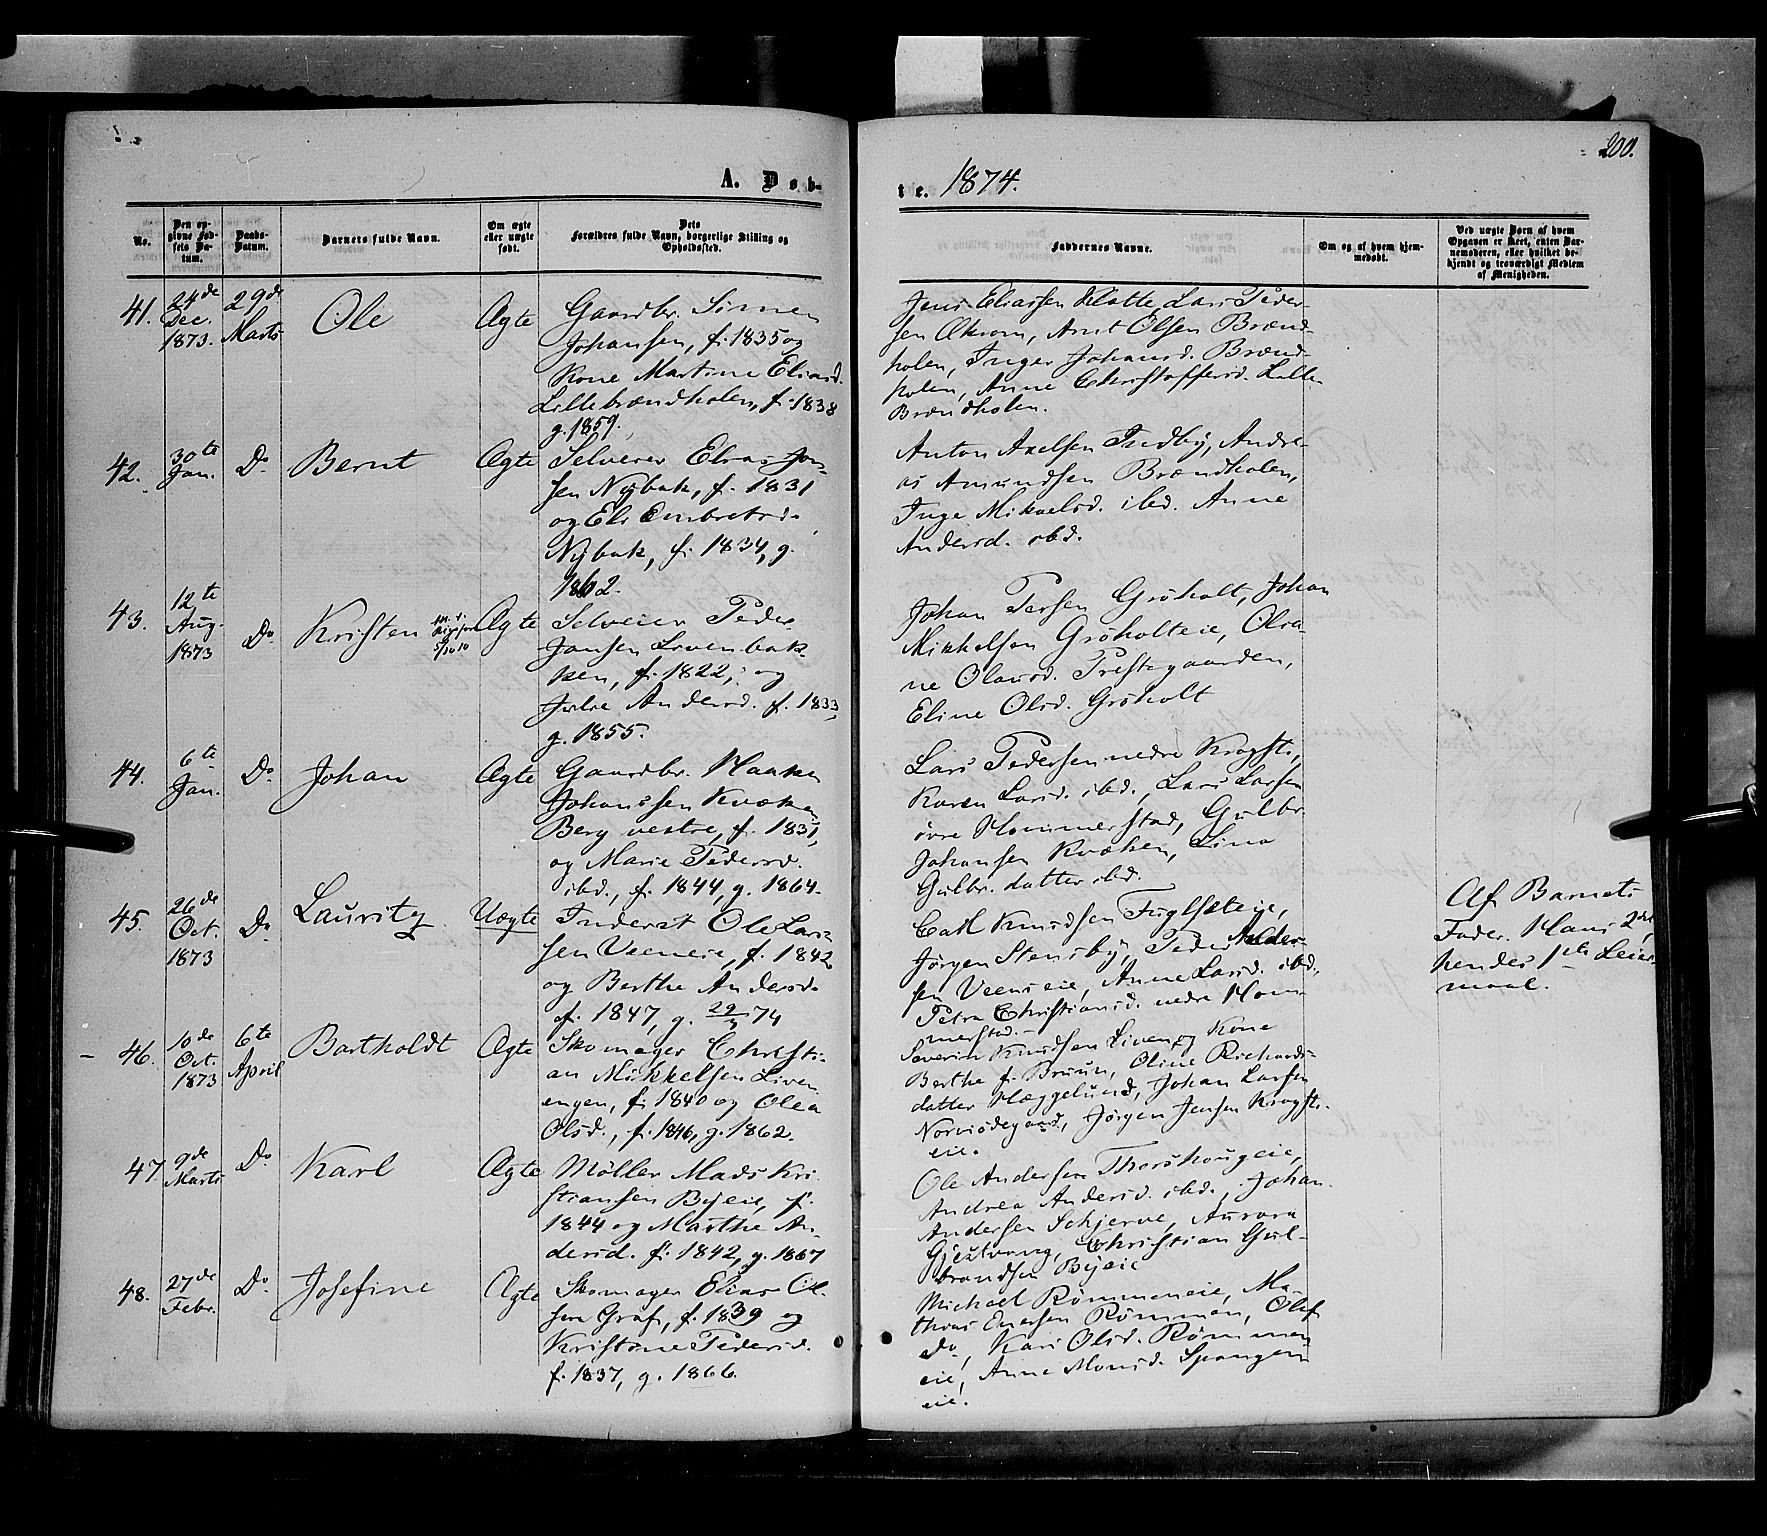 200.
A. Døb-
te. 1874.
No.
Den op-
givne Fød-
sels Da-
tum.
Daabs-
Datum.
Barnets fulde Navn.
Om ægte
eller uægte
født.
Dets
Forældres fulde Navn, borgerlige Stilling og
Opholdssted.
Faddernes Navne.
Om og af hvem hjem-
medøbt.
Ved uægte Børn af hvem
Opgaven er skeet, enten Bar-
nemoderen, eller hvilket be-
kjendt og troværdigt Medlem
af Menigheden.
41.
24de
Dec.
1873.
29de
Marts
Ole
Ægte
Gaardbr. Simen
Johansen, f. 1835 og
Kone Martine Eliasd.
Lillebrændholen, f. 1838
g. 1859.
Jens Eliassen Klatte, Lars Peder-
sen Økrom, Arnt Olsen Brænd-
holen, Inger Johansd. Brænd-
holen, Anne Christoffersd. Lille
Brændholen.
42.
30te
Jan.
Do
Bernt
Ægte
Selveier Elias Jon-
sen Nybak, f. 1831
og Eli Embretsd.
Nybak, f. 1834, g.
1862.
Anton Axelsen Tredby, Andre-
as Amundsen Brændholen,
Inge Mikaelsd. ibd. Anne
Andersd. ibd.
43.
12te
Aug.
1873
Do
Kristen
5/10 10
Ægte
Selveier Peder
Jansen Lovenbak-
ken, f. 1822, og
Julie Andersd. f. 1833,
g. 1855.
Johan Persen Grøholt, Johan
Mikkelsen Grøholteie, Olia-
ne Olausd. Prestegaarden,
Eline Olsd. Grøholt
44.
6te
Jan.
Do
Johan
Ægte
Gaardbr. Haaken
Johanssen Kvæken
Berg vestre, f. 1831,
og Marie Pedersd.
ibd., f. 1844, g. 1864.
Lars Pedersen nedre Krogsti,
Karen Larsd. ibd., Lars Larsen
øvre Hommerstad, Gulbr.
Johansen Kvæken, Lina
Gulbr. datter ibd.
45.
26de
Oct.
1873
Do
Lauritz
Uægte
Inderst Ole Lar-
sen Veeneie, f. 1842
og Berthe Andersd.
f. 1847, g. 29/3 74
Carl Knudsen Fuglsteie,
Jørgen Stensby, Peder Ander-
sen Veeneeie, Anne Larsd. ibd,
Petra Christiansd. nedre Hom-
merstad.
Af Barnets
Fader. Hans 2det,
hendes 1ste Leier-
maal.
46.
10de
Oct.
1873
6te
April
Bartholdt
Ægte
Skomager Christi-
an Mikkelsen Liven
engen, f. 1840 og Olea
Olsd., f. 1846, g. 1862.
Severin Knudsen Liven og Kone
Berthe f. Bruun, Oline Richards-
datter Hæggelund, Johan Larsen
Nordødegaard, Jørgen Jensen Krogsti-
eie.
47.
9de
Marts
Do
Karl
Ægte
Møller Mads Kri-
stiansen Byeie, f.
1844 og Marthe An-
dersd. f. 1842, g. 1867
Ole Andersen Thorshougeie,
Andrea Andersd. ibd., Johan
Andersen Schjerve, Aurora
Gjestvang, Christian Gul-
brandsen Byeie
48.
27de
Febr.
Do
Josefine
Ægte
Skomager Elias Ol-
sen Graf, f. 1839 og
Kristine Pedersd.
f. 1837, g. 1866.
Michael Rømmeneie, Ma-
thias Enersen Rømmen, Olef
Do, Kari Olsd. Rømmen
eie, Anne Monsd. Spangen
eie.